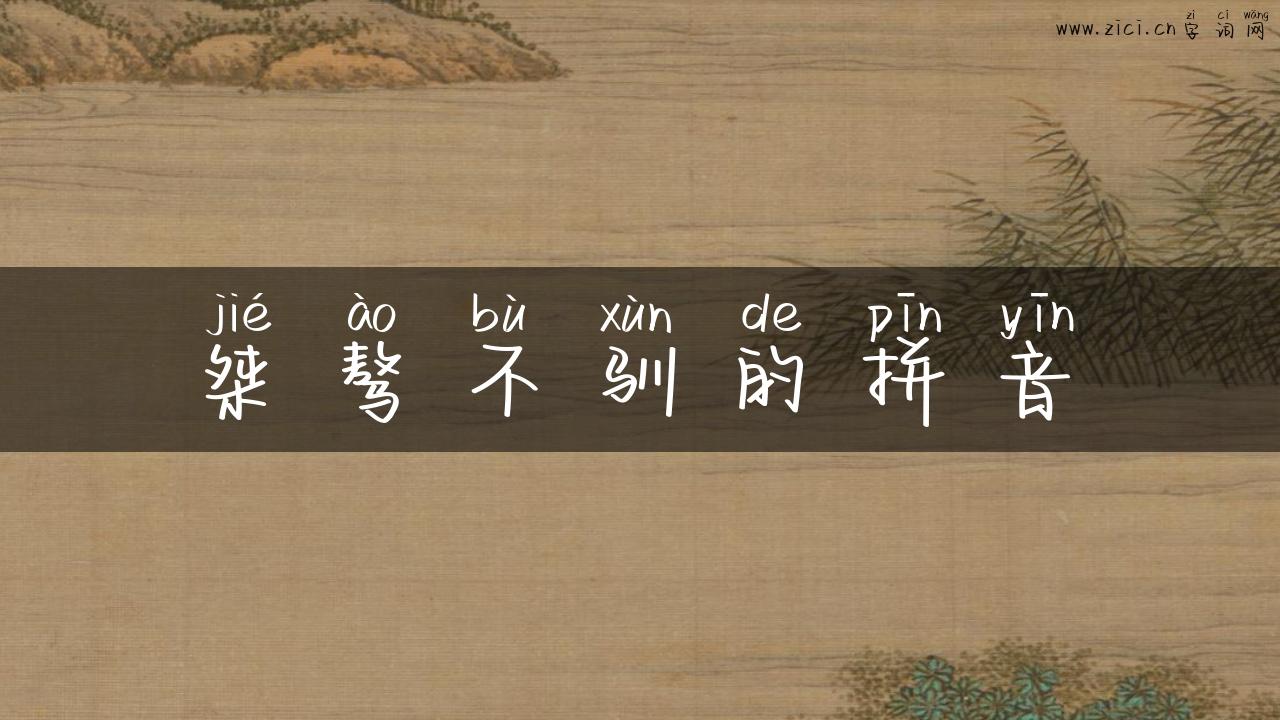 zì cí wǎng
www.zici.cn 字词网
jié ào bù xùn de pīn yīn
桀骜不驯的拼音